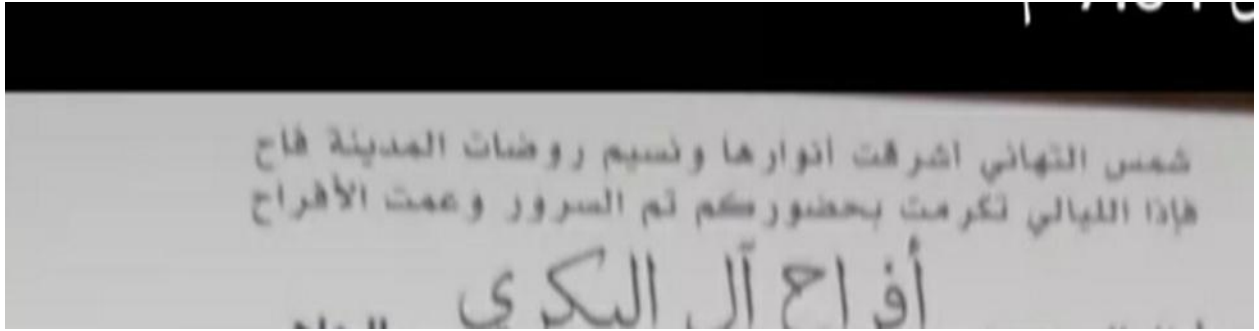 شمس التهاني اشرقت انوارها ونسيم روضات المدينة فاح
فإذا الليالي تكرمت بحضوركم تم السرور وعمت الأفراح
أفراح آل البكري